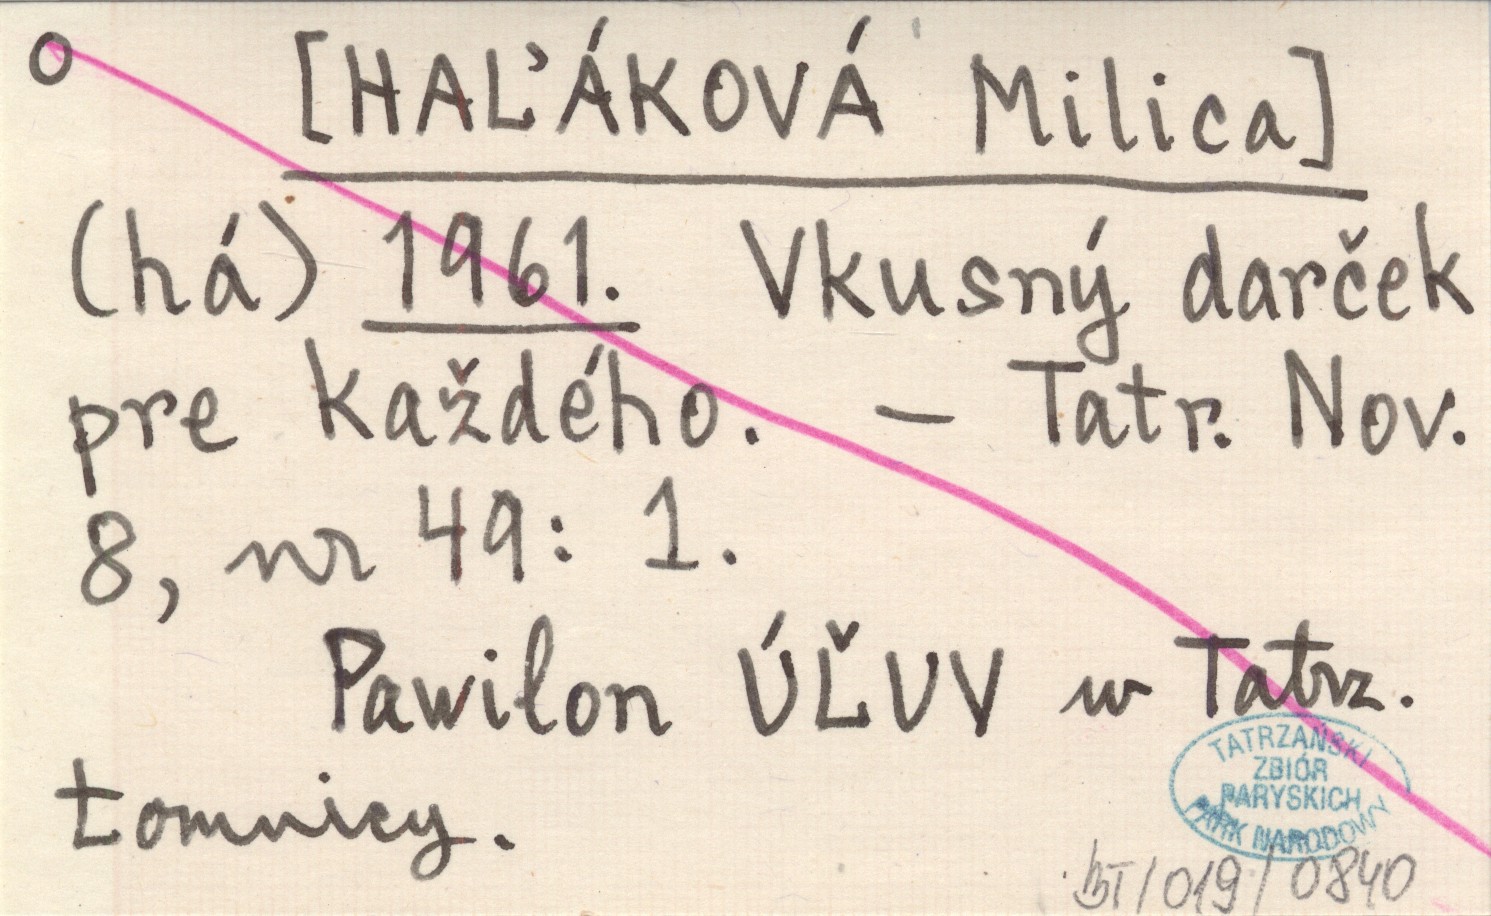 [HAĽÁKOVÁ Milica]
(há) 1961. Vkusný darček
pre každého. – Tatr. Nov.
8, nr 49: 1.
Pawilon ÚĽUV w Tatrz.
Łomnicy.
TATRZAŃSKI
ZBIÓR
PARYSKICH
PARK NARODOWY
BT/019/0840